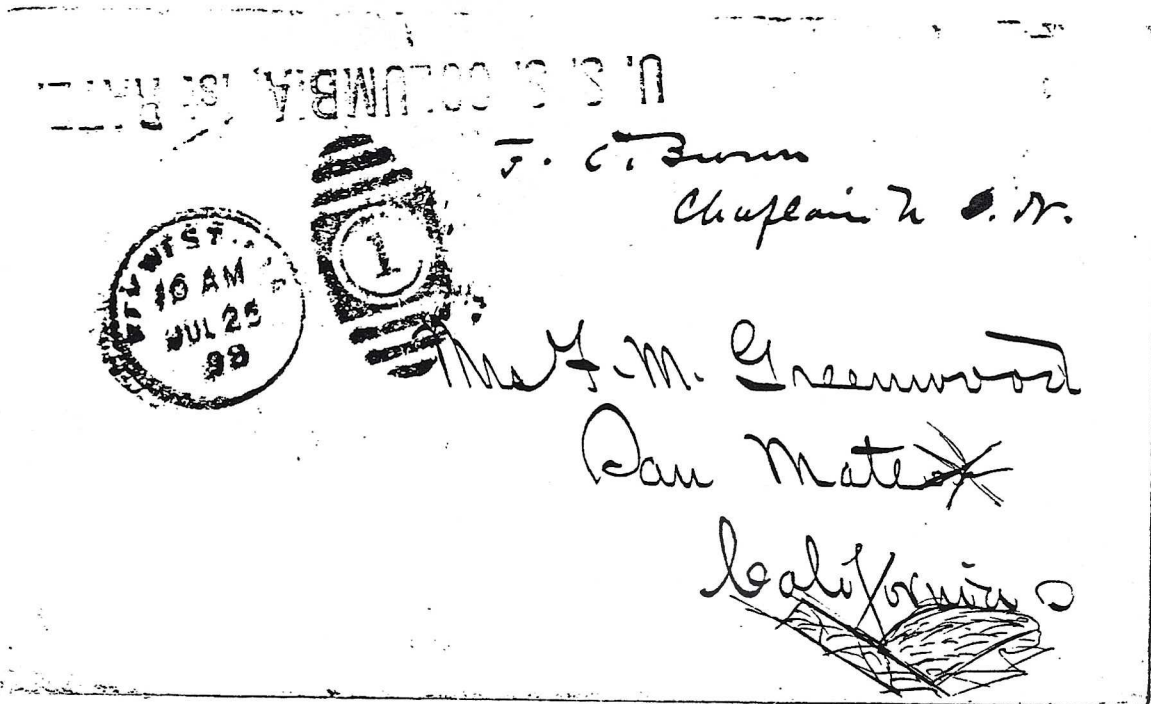 U.S.S. COLUMBIA, 1ST RATE.
Chaplain U. S. N.
KEY WEST.
10 AM
JUL 25
98
1
Mrs F. M. Greenwood
San Mateo
California